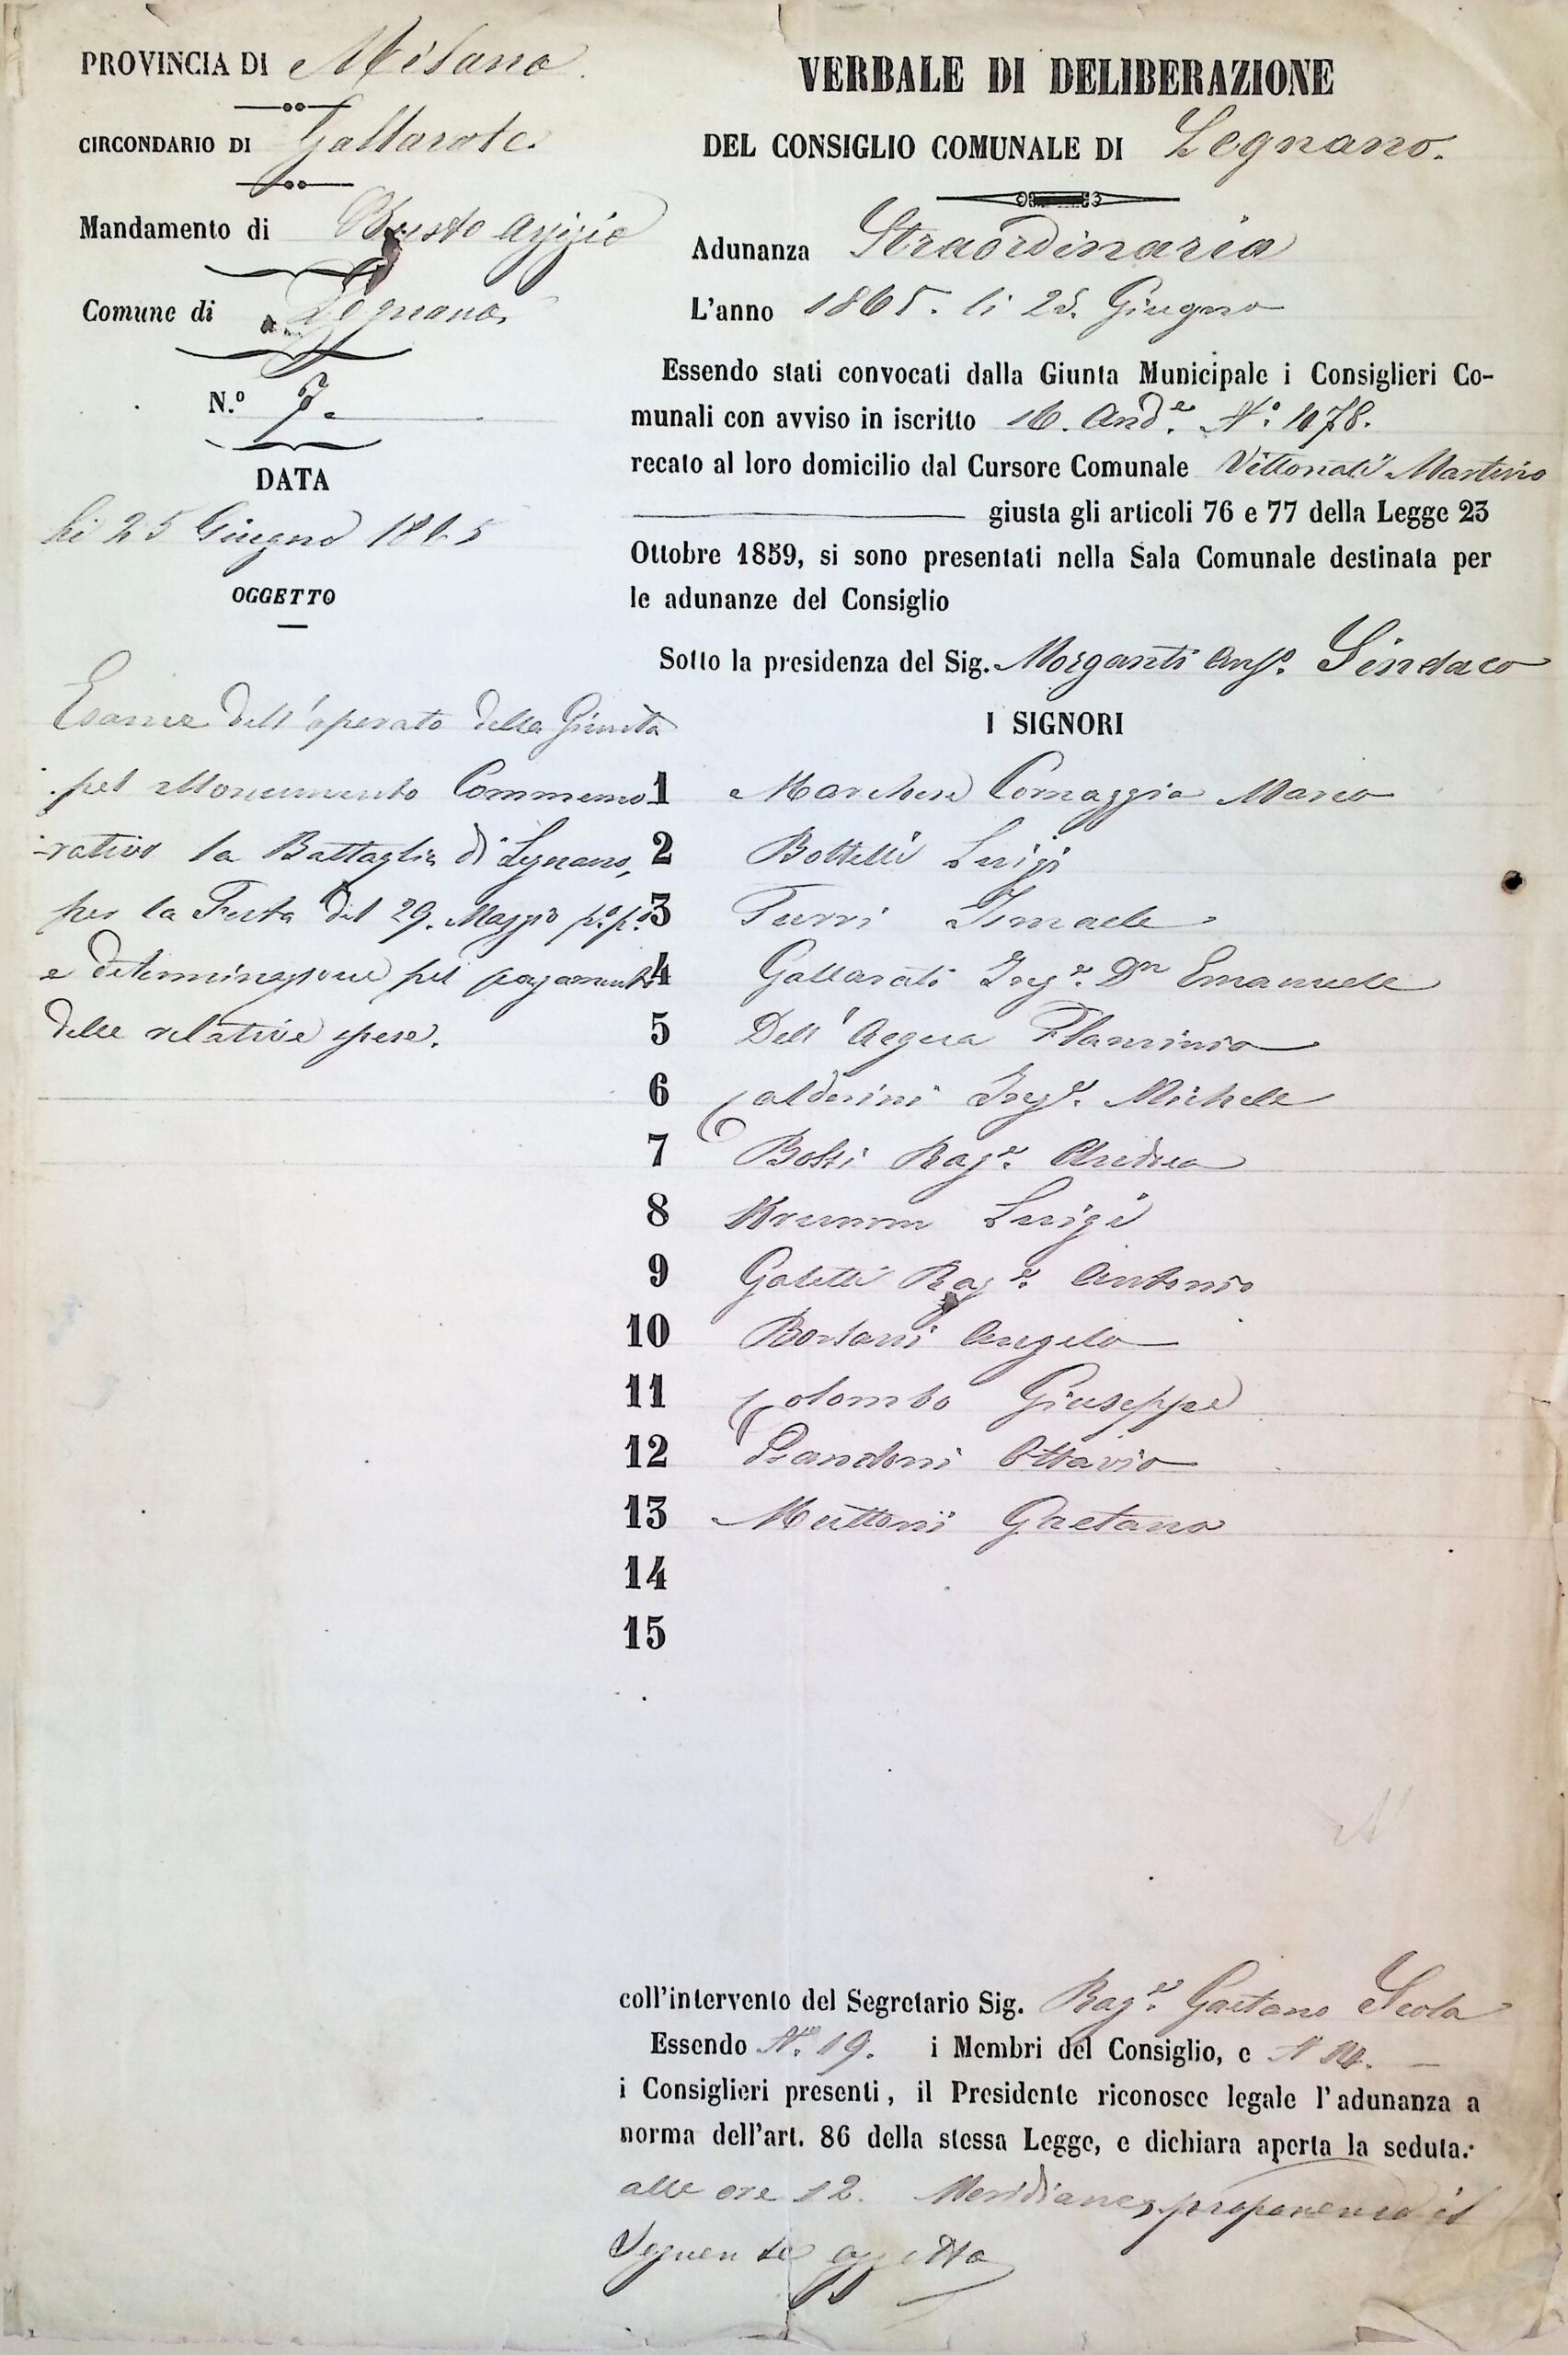 PROVINCIA DI Milano
CIRCONDARIO DI Gallarate.
Mandamento di Busto Arsizio
Comune di Legnano.
N.º 7.
DATA
li 25 Giugno 1865
OGGETTO
Esame dell'operato della Giunta
pel Monumento Commemo
-rativo la Battaglia di Legnano,
per la Festa del 29. Maggio p.º p.º
e determinazione pel pagamento
delle relative spese.
VERBALE DI DELIBERAZIONE
DEL CONSIGLIO COMUNALE DI Legnano.
Adunanza Straordinaria
L'anno 1865. li 25. Giugno
Essendo stati convocati dalla Giunta Municipale i Consiglieri Co-
munali con avviso in iscritto 16. And.e N.º 1078.
recato al loro domicilio dal Cursore Comunale Vittonati Martino
giusta gli articoli 76 e 77 della Legge 23
Ottobre 1859, si sono presentati nella Sala Comunale destinata per
le adunanze del Consiglio
Sotto la presidenza del Sig. Morganti Sindaco
I SIGNORI
1 Marchese Cornaggia Marco
2 Bottelli Luigi
3 Turri Ismaele
4 Gallarati Ing.e Dn Emanuele
5 Dell'Acqua Flaminio
6 Calderini Ing.e Michele
7 Bossi Rag.e Andrea
8 Krumm Luigi
9 Galetti Rag.e Antonio
10 Borsani Angelo
11 Colombo Giuseppe
12 Prandoni Ottavio
13 Muttoni Gaetano
14
15
coll'intervento del Segretario Sig. Rag.e Gaetano Scola
Essendo N.º 19. i Membri del Consiglio, e N 14.
i Consiglieri presenti, il Presidente riconosce legale l'adunanza a
norma dell'art. 86 della stessa Legge, e dichiara aperta la seduta.
alle ore 12. Meridiane, proponendo il
seguente oggetto